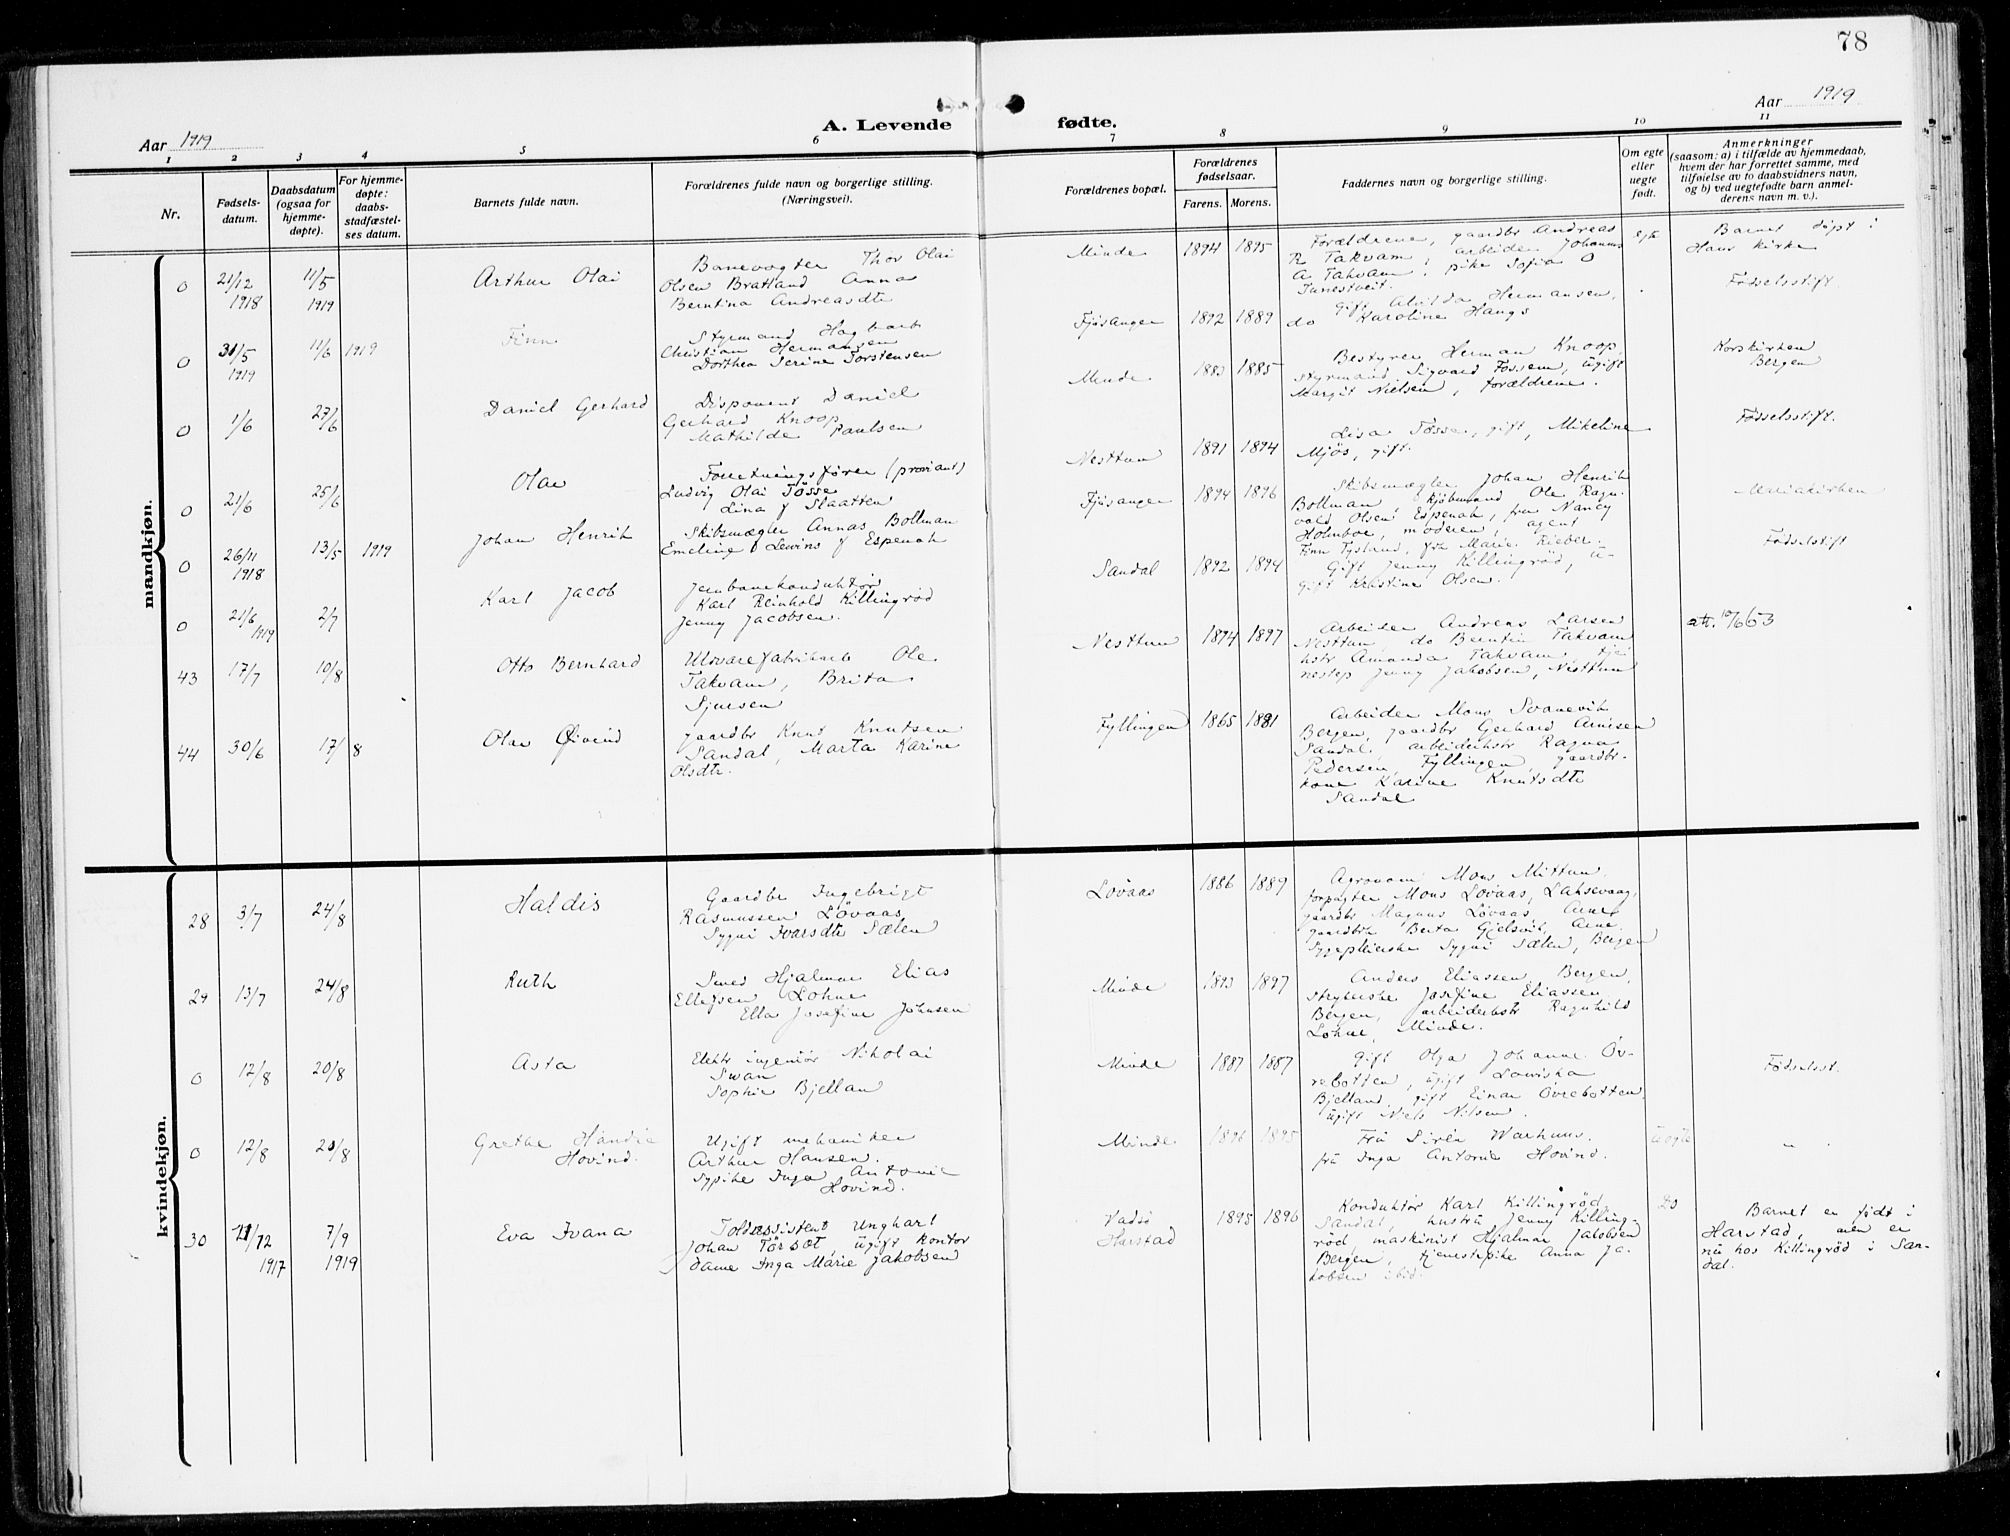 78
Aar 1919
A. Levende fødte.
Aar 1919
1 2 3 4 5 6 7 8 9 10 11
Nr.
Fødsels-
datum.
Daabsdatum
(ogsaa for
hjemme-
døpte).
For hjemme-
døpte:
daabs-
stadfæstel-
ses datum.
Barnets fulde navn.
Forældrenes fulde navn og borgerlige stilling.
(Næringsvei).
Forældrenes bopæl.
Forældrenes
fødselsaar.
Farens. Morens.
Faddernes navn og borgerlige stilling.
Om egte
eller
uegte
født.
Anmerkninger
(saasom: a) i tilfælde av hjemmedaab,
hvem der har forrettet samme, med
tilføielse av to daabsvidners navn,
og b) ved uegtefødte barn anmel-
derens navn m. v.).
mandkjøn.
0 21/12 1918 11/5 1919
Arthur Olai
Banevogter Thor Olai
Olsen Bratland Anna
Berntina Andreasdtr
Minde 1894 1895
Forældrene, gaardbr Andreas
R Takvam, arbeider Johannes
A Takvam, pike Sofia O
Tunestveit.
egte
Barnet døpt i
Haus kirke
0 31/5 1919 11/6 1919
Finn
Styrmand Hagbart
Christian Hermansen
Dorthea Serine Torstensen
Fjøsanger 1892 1889
gift Alvilda Hermansen,
do Karoline Haugs
Fødselsstift.
0 1/6 27/6
Daniel Gerhard
Disponent Daniel
Gerhard Knoop
Mathilde Paulsen
Minde 1883 1885
Bestyrer Herman Knoop,
styrmand Sigvard Fossem, ugift
Margit Nielsen, forældrene.
Korskirken
Bergen
0 21/6 25/6
Olav
Forretningsfører (proviant)
Ludvig Olai Tøsse
Lina f Slaatten
Nesttun 1891 1894
Lisa Tøsse, gift, Mikeline
Mjøs, gift.
Fødselsstift.
0 26/11 1918 13/5 1919
Johan Henrik
Skibsmægler Annas Bollman
Emeline Levins f Espenak
Fjøsanger 1894 1896
Skibsmægler Johan Henrik
Bollman, kjøbmand Ole Ragn-
vald Olsen Espenak, fru Nancy
Holmboe, moderen, agent
Finn Tystrand, frk Marie Rieber.
Mariakirken
0 21/6 1919 2/7
Karl Jacob
Jernbanekonduktør
Karl Reinhold Killingrød
Jenny Jacobsen.
Sandal 1892 1894
Gift Jenny Killingrød, u-
gift Kristine Olsen.
Fødselsstift
43 17/7 10/8
Otto Bernhard
Uldvarefabrikarb Ole
Takvam, Brita
Sjursen
Nesttun 1894 1897
Arbeider Andreas Larsen
Nesttun, do Berntin Takvam
hstr Amanda Takvam tje-
nestep Jenny Jakobsen, Nesttun
att. 10/6 53
44 30/6 17/8
Olav Øivind
gaardbr Knut Knutsen
Sandal, Marta Karine
Olsdtr.
Fyllingen 1865 1881
Arbeider Mons Svanevik
Bergen, gaardbr Gerhard Arnesen
Sandal. arbeiderhstr Ragna
Pedersen, Fyllingen, gaardbr-
kone Karine Knutsdtr
Sandal
kvindekjøn.
28 3/7 24/8
Haldis
Gaardbr Ingebrigt
Rasmussen Løvaas,
Sygni Ivarsdtr Sælen
Løvaas 1886 1889
Agronom Mons Mittun,
forpagter Mons Løvaas, Laksevaag,
gaardbr Magnus Løvaas, Arne,
gaardbrk Berta Gjelsvik, Arne.
Sygepleierske Sygni Sælen, Bergen
29 13/7 24/8
Ruth
Smed Hjalmar Elias
Ellefsen Lohne
Ella Josefine Johnsen
Minde 1893 1897
Anders Eliassen, Bergen,
strykerske Josefine Eliassen
Bergen, arbeiderhstr Ragnhild
Lohne, Minde.
0 12/8 20/8
Asta
Elektr ingeniør Nikolai
Swan
Sophie Bjelland
Minde 1887 1887
Gift Olga Johanne Øv-
rebotten, ugift Lowiska
Bjelland, gift Einar Øvrebotten,
ugift Niels Nilsen.
Fødselsst.
0 12/8 20/8
Grethe Handie
Hovind.
Ugift mekaniker
Arthur Hansen.
Sypike Inga Antonie
Hovind.
Minde 1896 1895
Fru Siren Warhuus.
fru Inga Antonie Hovind.
Uegte
" "
30 21/12 1917 7/9 1919
Eva Ivana
Toldassistent Unghart
Johan Tørsæt ugift kontor
dame Inga Marie Jakobsen
Vadsø
Harstad
1895 1896
Konduktør Karl Killingrød,
Sandal, hustru Jenny Killing-
rød, maskinist Hjalmar Jakobsen
Bergen, tjenestepike Anna Ja-
kobsen ibid.
Do
Barnet er født i
Harstad, men er
nu hos Killingrød i San-
dal.